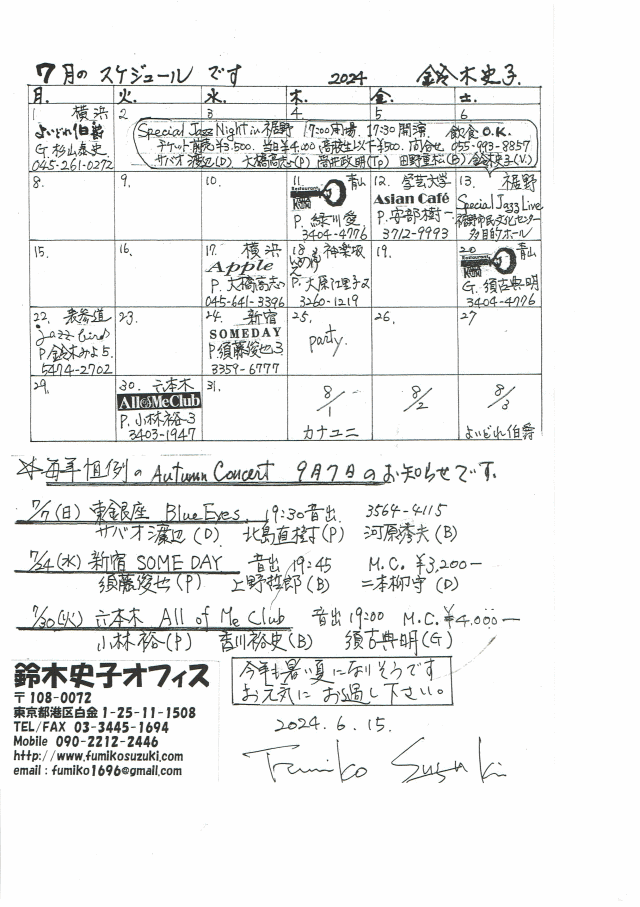 7月の スケジュール です 2024 鈴木史子
月. 火. 水. 木. 金. 土.
1 横浜
よいどれ伯爵
G. 杉山泰史
045-261-0272
2 3 4. 5 6.
Special Jazz Night in 裾野 17:00開場. 17:30開演. 飲食O.K.
チケット前売¥3.500. 当日¥4.000 高校生以下¥500. 問合せ 055-993-8857
サバオ渡辺(D) 大橋高志(P) 高井政明(Tp) 田野重松(B) 鈴木史子(V.)
8. 9. 10.
11. 青山
Restaurant
P. 緑川愛
3404-4776
12. 学芸大学
Asian Café
P. 安部樹一
3712-9993
13. 裾野
Special Jazz Live
裾野市民文化センター
多目的ホール
15. 16.
17. 横浜
Apple
P. 大橋高志
045-641-3396
18. 神楽坂
P. 大原江里子
3260-1219
19.
20 青山
Restaurant
G. 須古典明
3404-4776
22. 表参道
jazz bird
P. 鈴木みよ5.
5474-2702
23.
24. 新宿
SOMEDAY
P. 須藤俊也3.
3359-6777
25.
party.
26. 27
29.
30. 六本木
All of Me Club
P. 小林裕 3
3403-1947
31.
8/1
カナユニ
8/2
8/3
よいどれ伯爵
☆毎年恒例の Autumn Concert 9月7日のお知らせです.
7/7(日) 東銀座 Blue Eyes. 19:30音出. 3564-4115
サバオ渡辺(D) 北島直樹(P) 河原秀夫(B)
7/24(水) 新宿 SOME DAY 音出 19:45 M.C. ¥3,200ー
須藤俊也(P) 上野哲郎(B) 二本柳守(D)
7/30(火) 六本木 All of Me Club 音出 19:00 M.C. ¥4.000ー
小林裕(P) 香川裕史(B) 須古典明(G)
今年も暑い夏になりそうです
お元気に お過し下さい。
2024. 6. 15.
Fumiko Suzuki
鈴木史子オフィス
〒108-0072
東京都港区白金 1-25-11-1508
TEL/FAX 03-3445-1694
Mobile 090-2212-2446
http://www.fumikosuzuki.com
email : fumiko1696@gmail.com